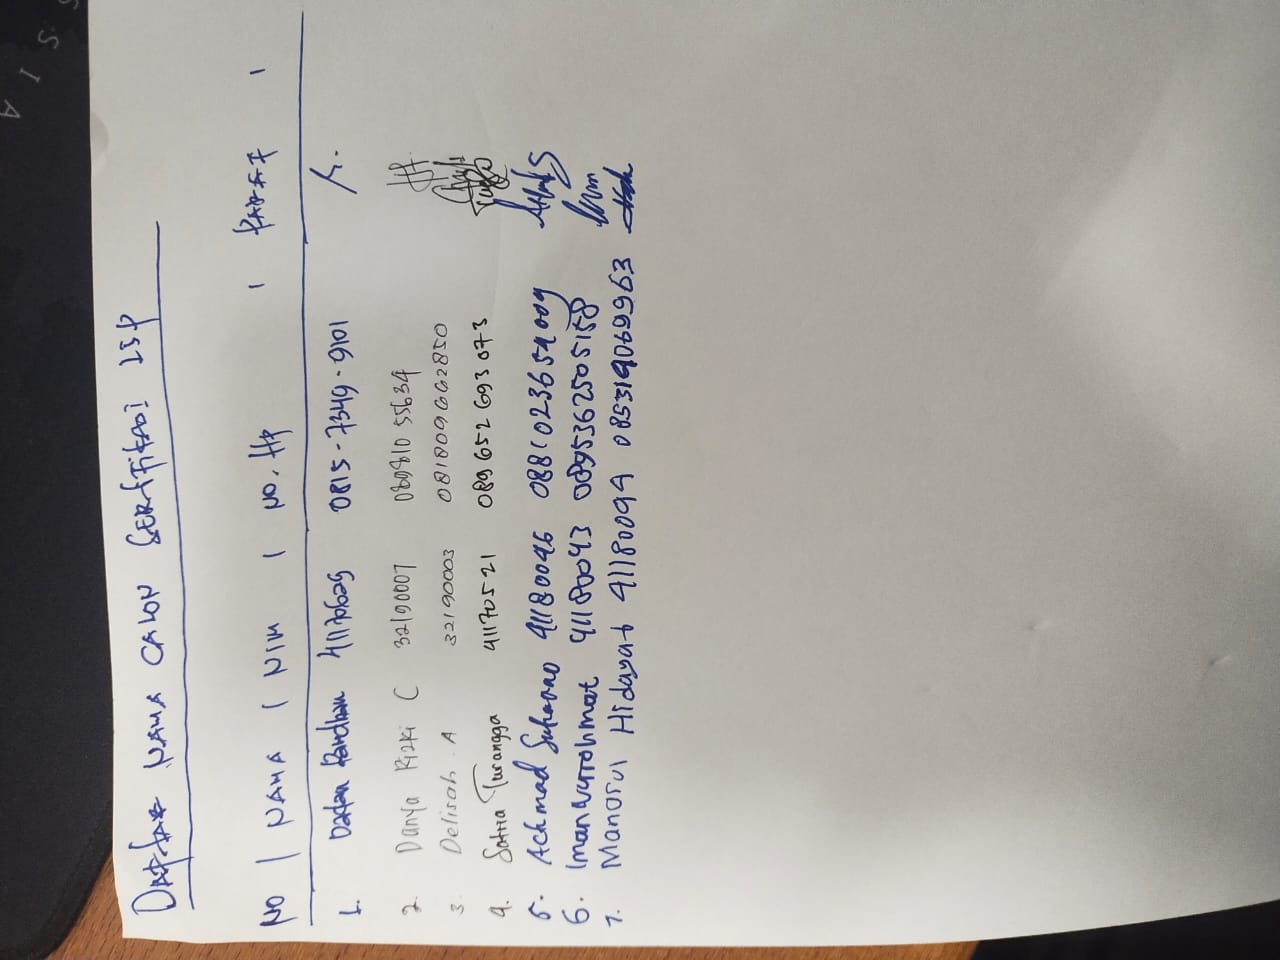 DAFTAR NAMA CALON SERTIFIKASI LSP
NO | NAMA | NIM | NO. HP | PARAF |
1. Dadan Ramdhan 41170629 0815-7349-9101
2. Danya Rizki C 32190007 089810 55634
3. Delisah . A 32190003 081809662850
4. Satria Turangga 41170521 089652693073
5. Achmad Suharno 41180046 0881023654009
6. Iman Nurrohmat 41180043 0895362505158
7. Manarul Hidayat 41180094 085319069963
S I A